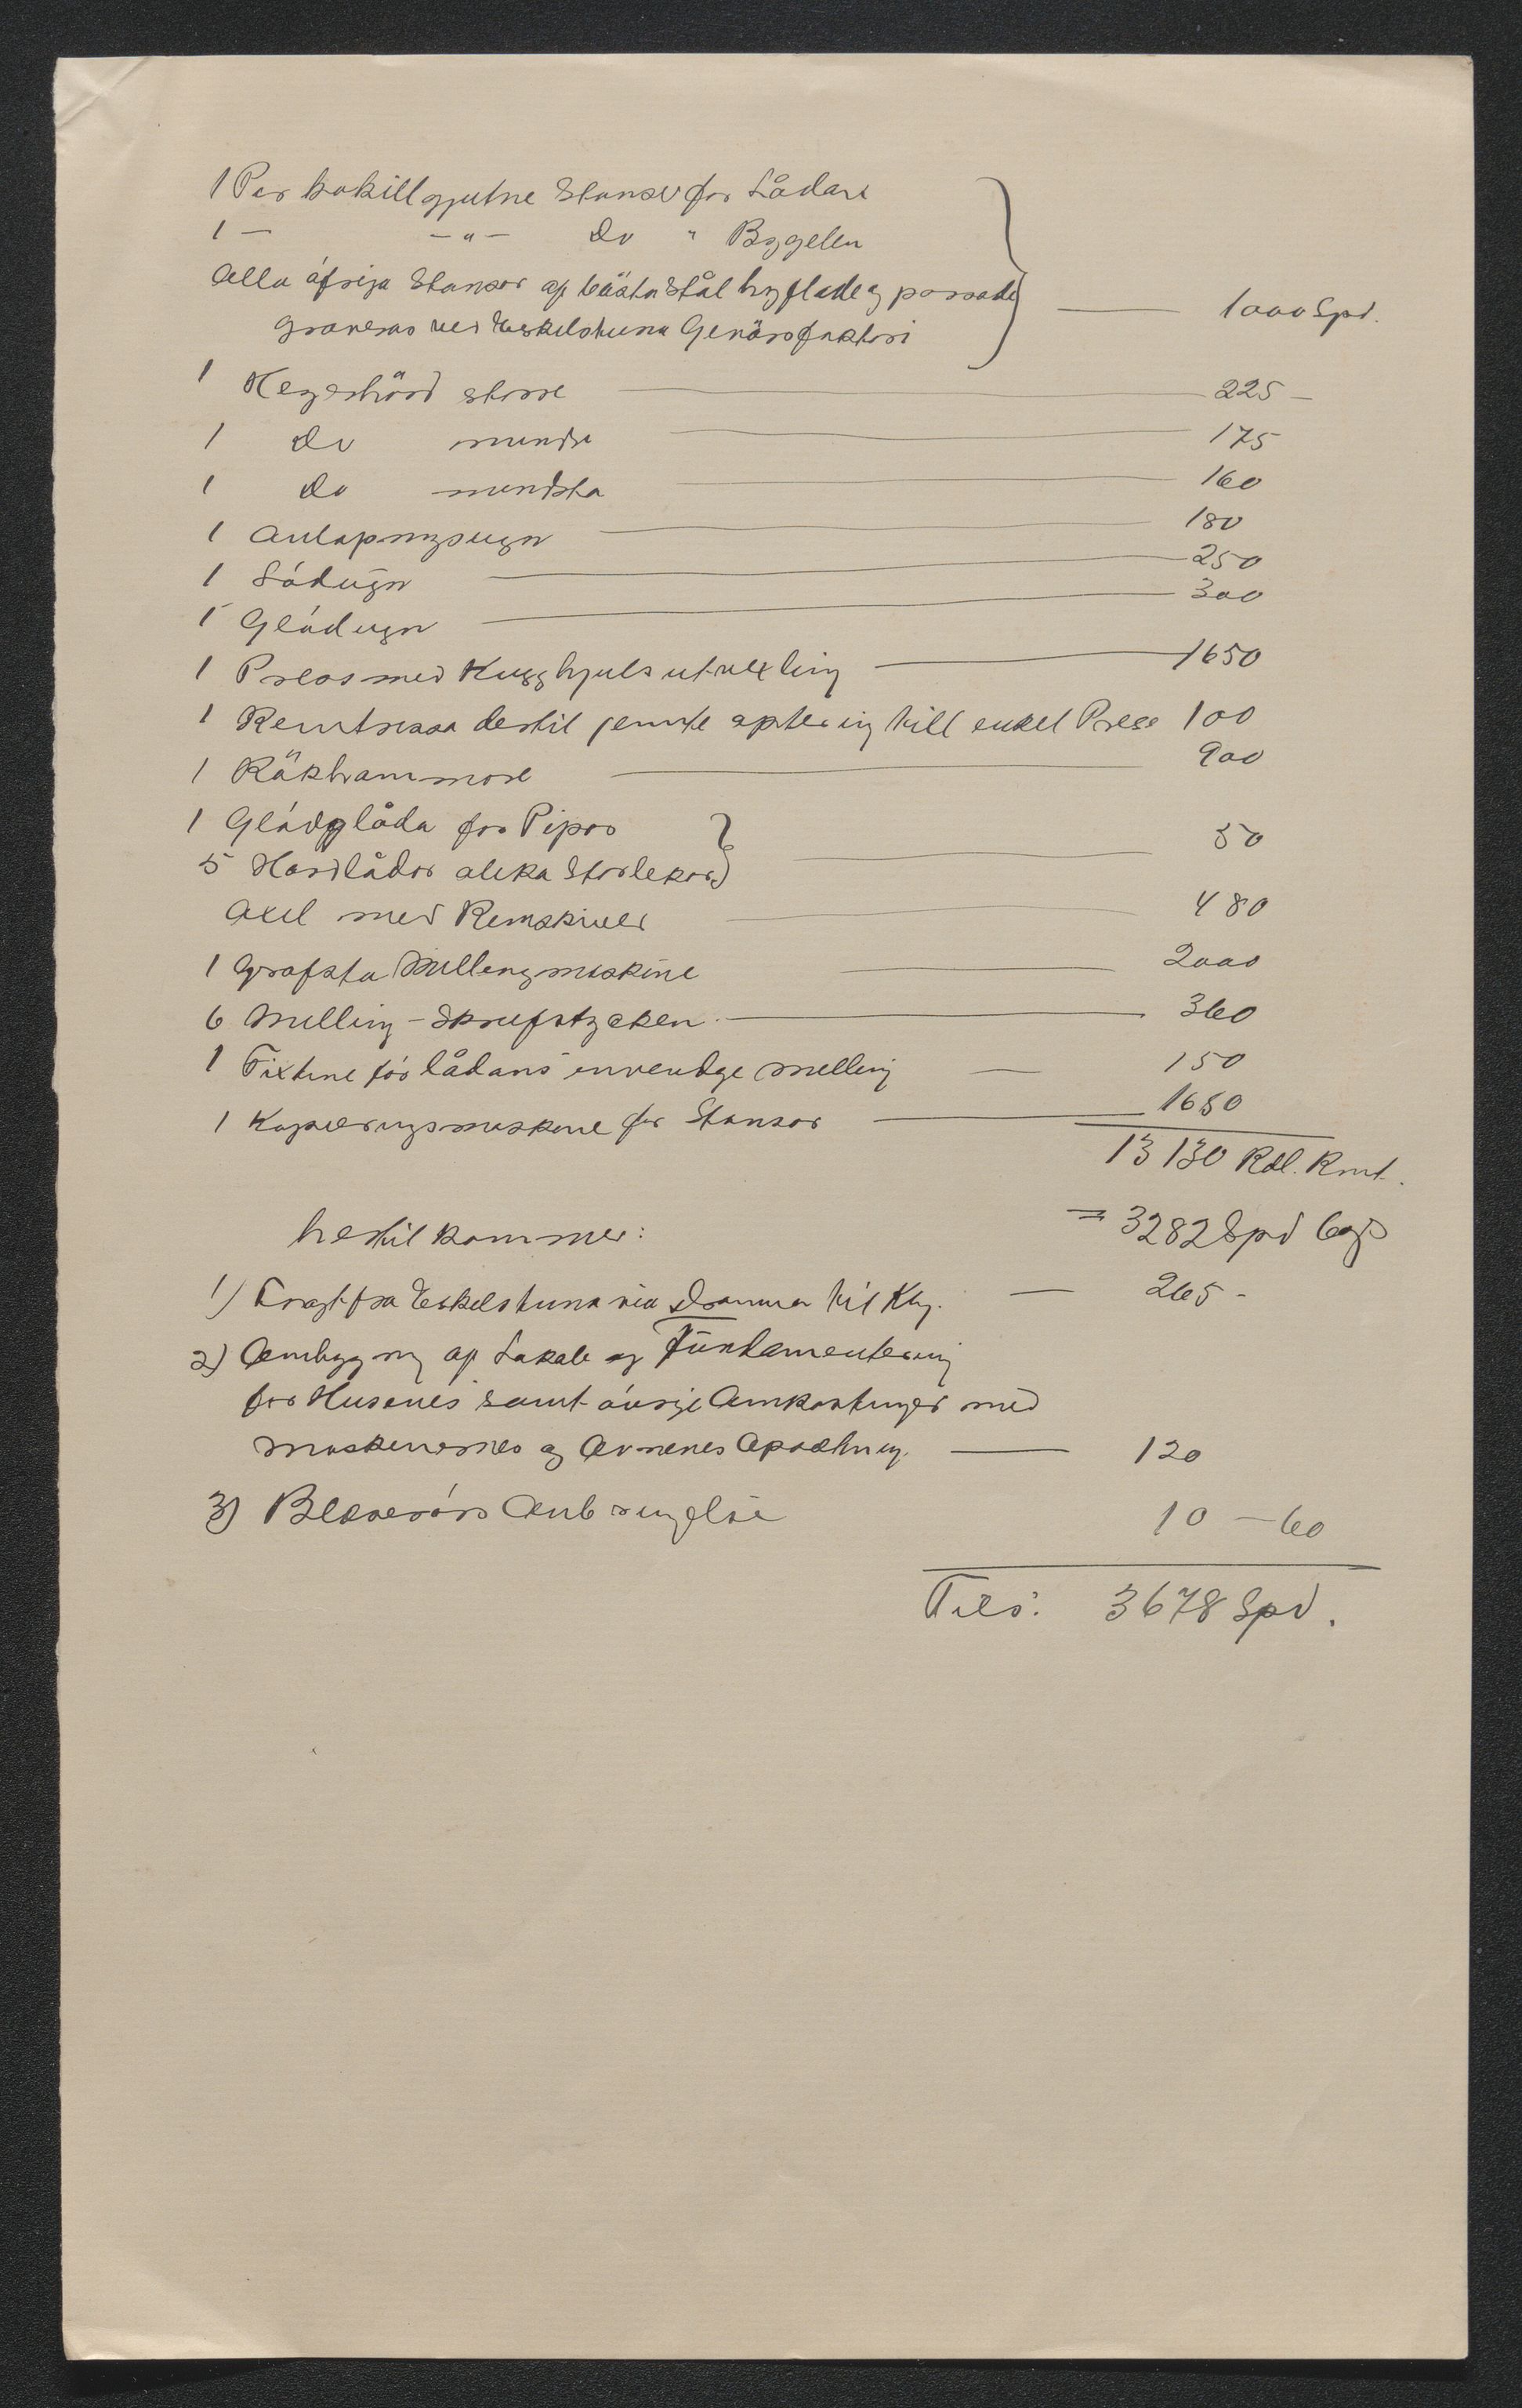 1 Par kokillgjutne Stanser for Lådan
1 — — " — Do " Bygelen
Alla öfriga Stanser af bästa Stål hyflade og passade
graveras ved Eskilstuna Gevärsfaktori — 1000 Spd.
1 Hegershärd större — 225 —
1 Do mindre — 175
1 Do mindsta — 160
1 Anlöpnings ugn — 180
1 Lödugn — 250
1 Glödugn — 300
1 Press med Kugghjuls utvexling — 1650
1 Remtrissa dertil jemte aptering till enkel Press 100
1 Räkhammare — 900
1 Glödglåda for Pipor
5 Hardlådor olika Storlekar — 50
Axel med Remskiver — 480
1 Grofsta Milling maskine — 2000
6 Milling-Skrufstycken — 360
1 Fixtur för lådans invendge Milling — 150
1 Kopieringsmaskine for Stanser — 1650
13130 Rdl. Rmt.
= 3282 Spd 60 s
hertil kommer:
1) Fragt fra Eskilstuna via Drammen til Kbg. — 265 -
2) Ombygning af Lokale og Fundamentering
for Husenes samt övrige Omkostninger med
Maskinernes og Ovnenes Opsætning. — 120
3) Blæserörs Anbringelse 10 — 60
Tils. 3678 Spd.